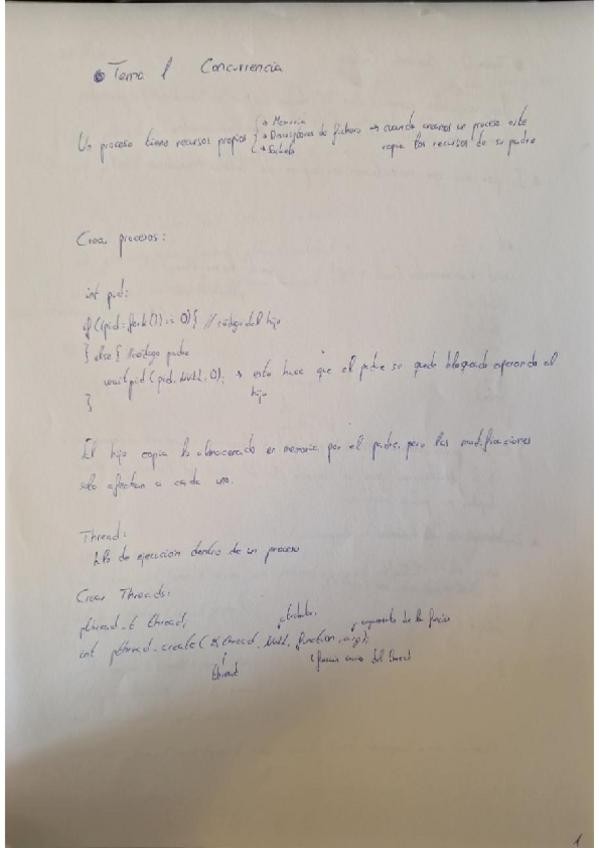 Tema 1 Concurrencia
Un proceso tiene recursos propios { → Memoria
→ Descriptores de fichero → cuando creamos un proceso este
→ Sockets copia los recursos de su padre
Crear procesos:
int pid;
if ((pid = fork()) == 0) { // código del hijo
} else { // código padre
waitpid (pid, NULL, 0); → esto hace que el padre se quede bloqueado esperando al
hijo
}
El hijo copia lo almacenado en memoria por el padre, pero las modificaciones
solo afectan a cada uno.
Thread:
Hilo de ejecución dentro de un proceso
Crear Threads:
pthread_t thread;
atributos. argumentos de la función
int pthread_create( &thread, NULL, function, arg);
thread función del thread
1